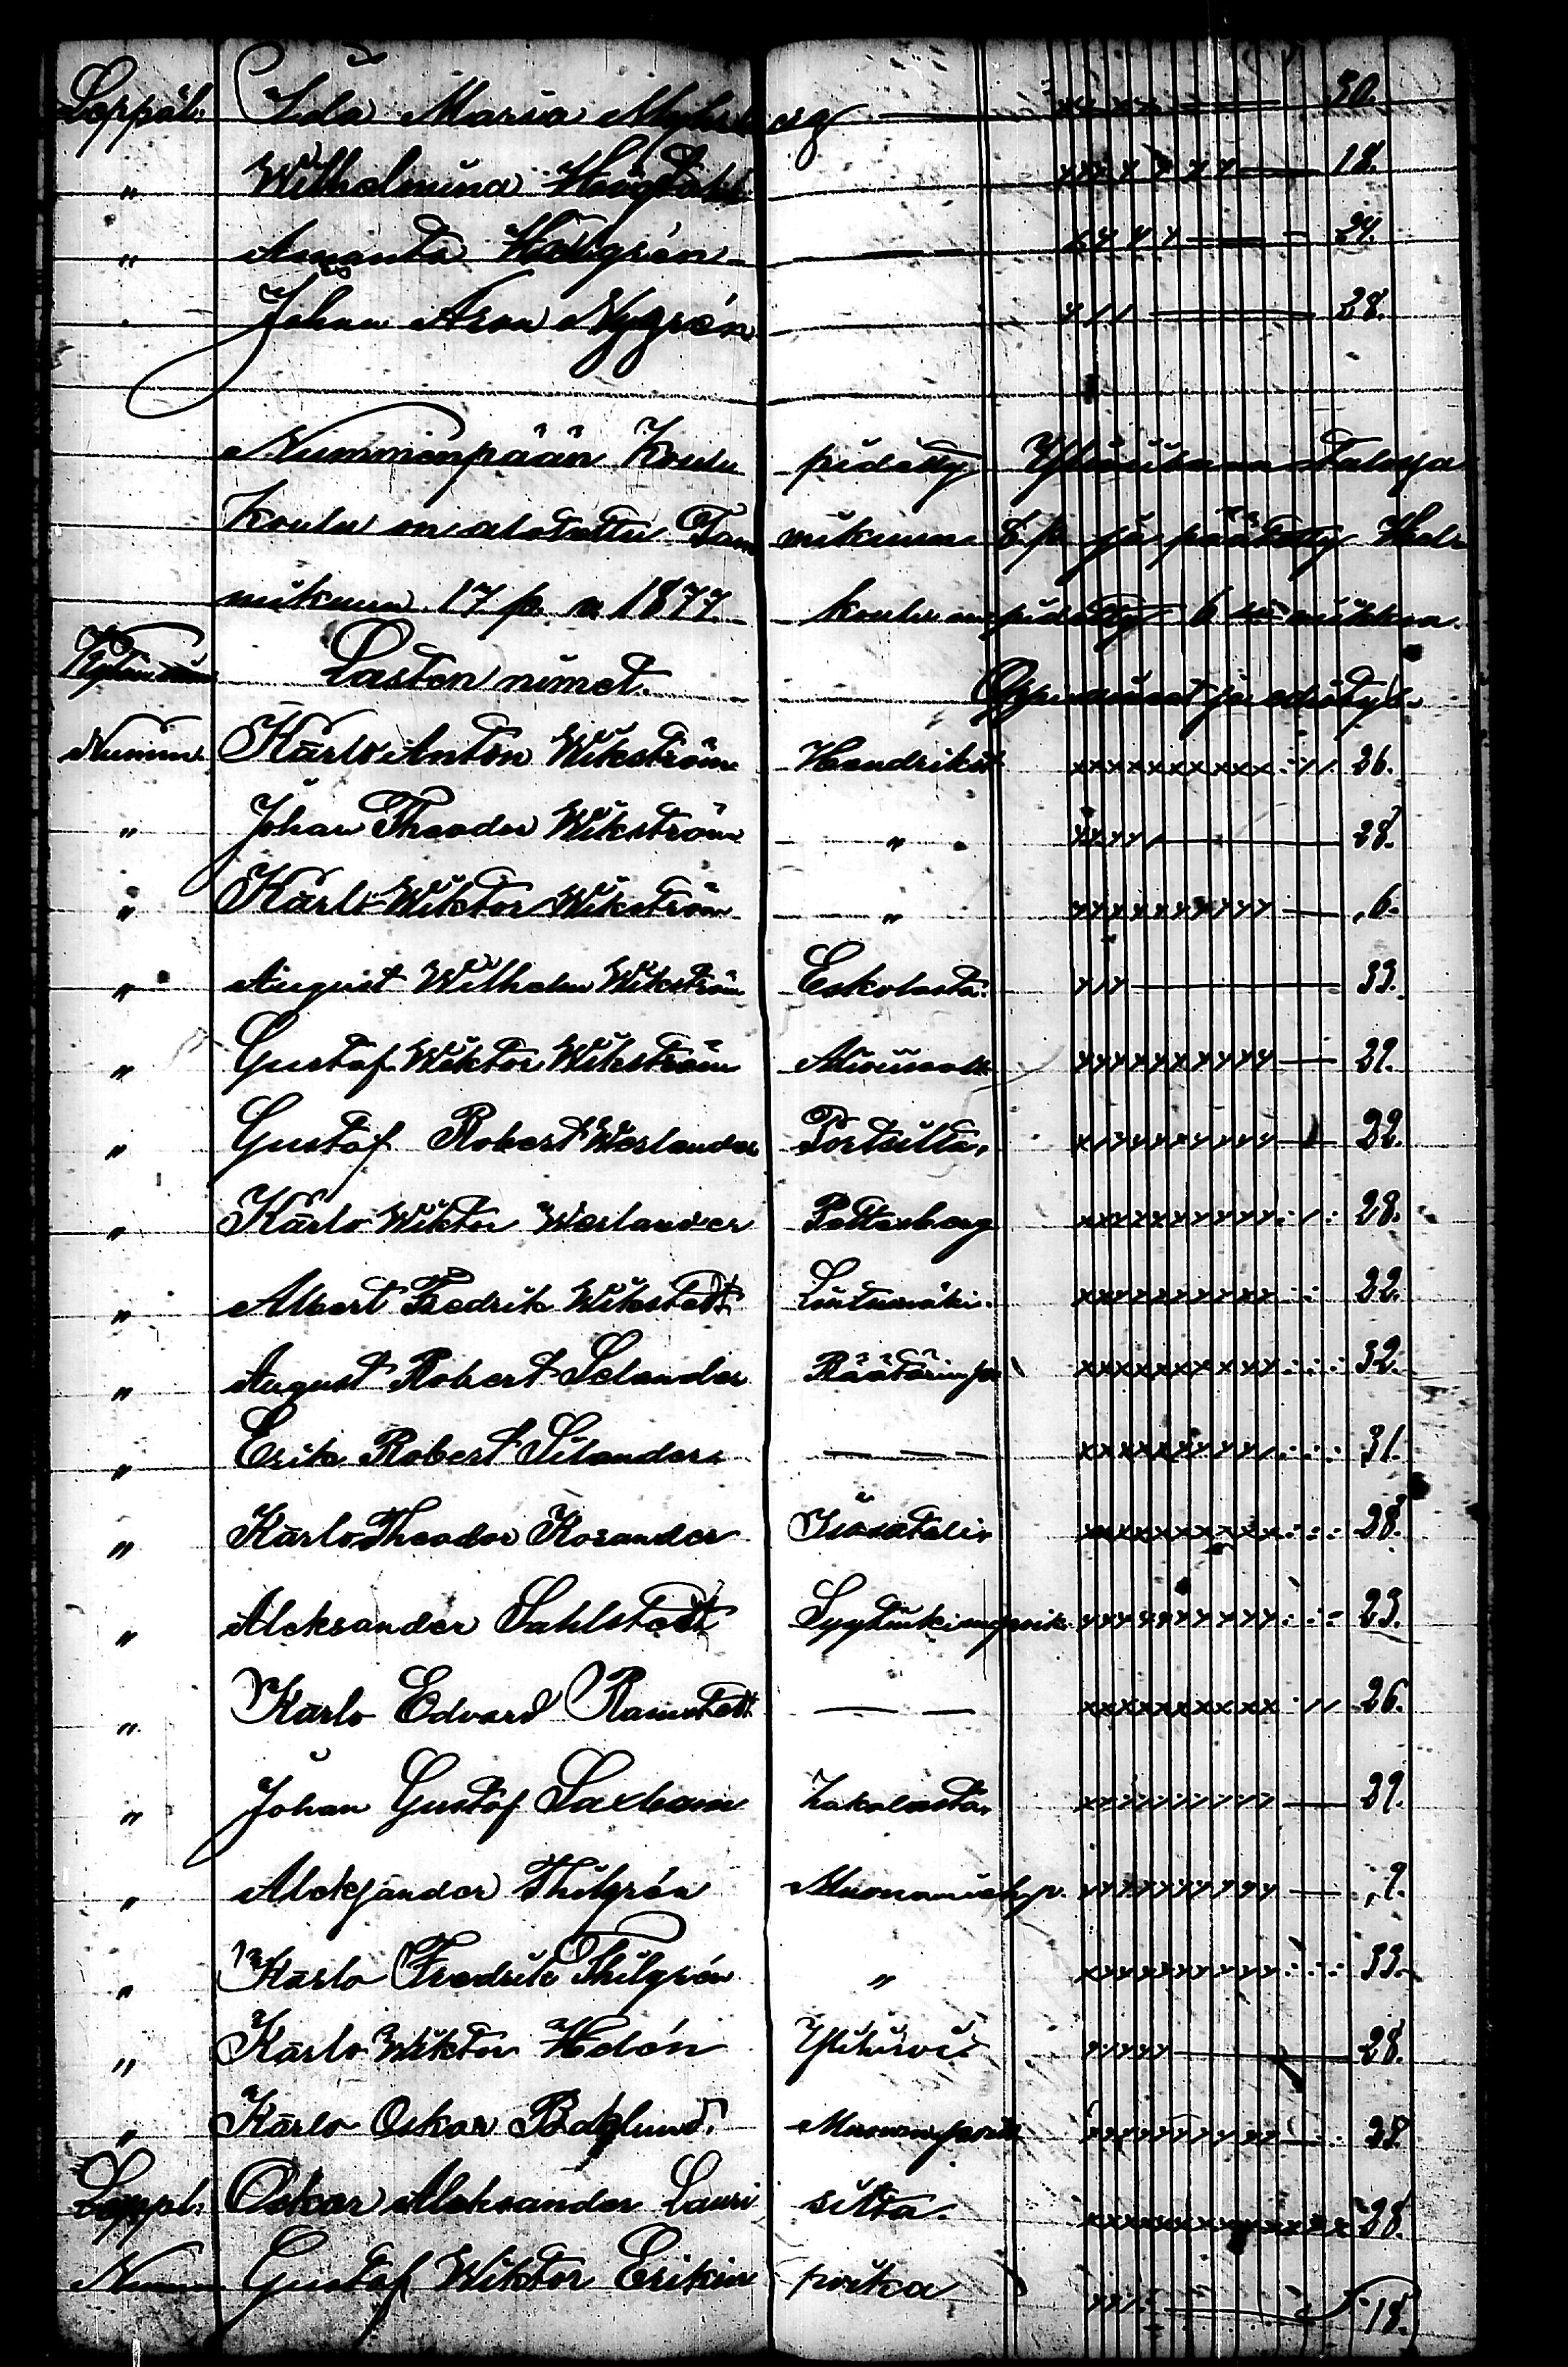 Leppäl. Ida Maria Myhrberg 30.
" Wilhelmina Högdahl 18.
" Amanta Hellgrén 24.
" Johan Aron Nygrén 28.
Nummenpään Koulu pidetty Yliviisana Talossa
Koulu on alotettu Tam mikuun 8 p. ja päätetty Hel-
mikuun 17 p. v. 1877. koulu on pidetty 6 viikkoa.
Kylän nimi Lasten nimet. Oppiaineet ja edistys
Numm. Karlo Anton Wikström Hendrikst 26.
" Johan Theodor Wikström " 28.
" Karlo Wiktor Wikström " 6.
" August Wilhelm Wikström Eskolasta. 33.
" Gustaf Wiktor Wikström 29.
" Gustaf Robert Weslander Portsilta, 22.
" Karlo Wiktor Weslander Pettersberg 28.
" Albert Fredrik Wikstedt Lintumäki. 22.
" August Robert Selander Räätärinp. 32.
" Erik Robert Silander — — — 31.
" Karlo Theodor Kosander Isosatali. 28.
" Aleksander Sahlstedt 23.
" Karlo Edvard Ramstedt — — 26.
" Johan Gustaf Saxbom 29.
" Aleksander Thilgrén 9.
" Karlo Fredrik Thilgrén " 33.
" Karlo Wiktor Hedén 28.
" Karlo Oskar Bäcklund. 28.
Leppl. Oskar Aleksander Lauri silta. 28.
Numm Gustaf Wiktor Erikin poika 18.